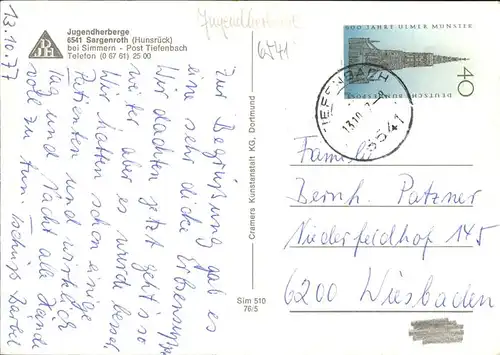 13.10.77
Jugendherberge
6541 Sargenroth (Hunsrück)
bei Simmern - Post Tiefenbach
Telefon (0 67 61) 25 00
DJH
Jugendherberge
6541
500 JAHRE ULMER MÜNSTER
DEUTSCHE BUNDESPOST
40
TIEFENBACH
13.10.
6541
Zur Begrüßung gab es
eine sehr dicke Erbsensuppe
Wir dachten jetzt geht's so
weiter aber es wurde besser.
Wir hatten schon einige
Patienten und wirklich
Tag und Nacht alle Hände
voll zu tun. Tschüß Bärbel
Cramers Kunstanstalt KG, Dortmund
Sim 510
76/5
Familie
Bernh. Patzner
Niederfeldhof 145
6200 Wiesbaden